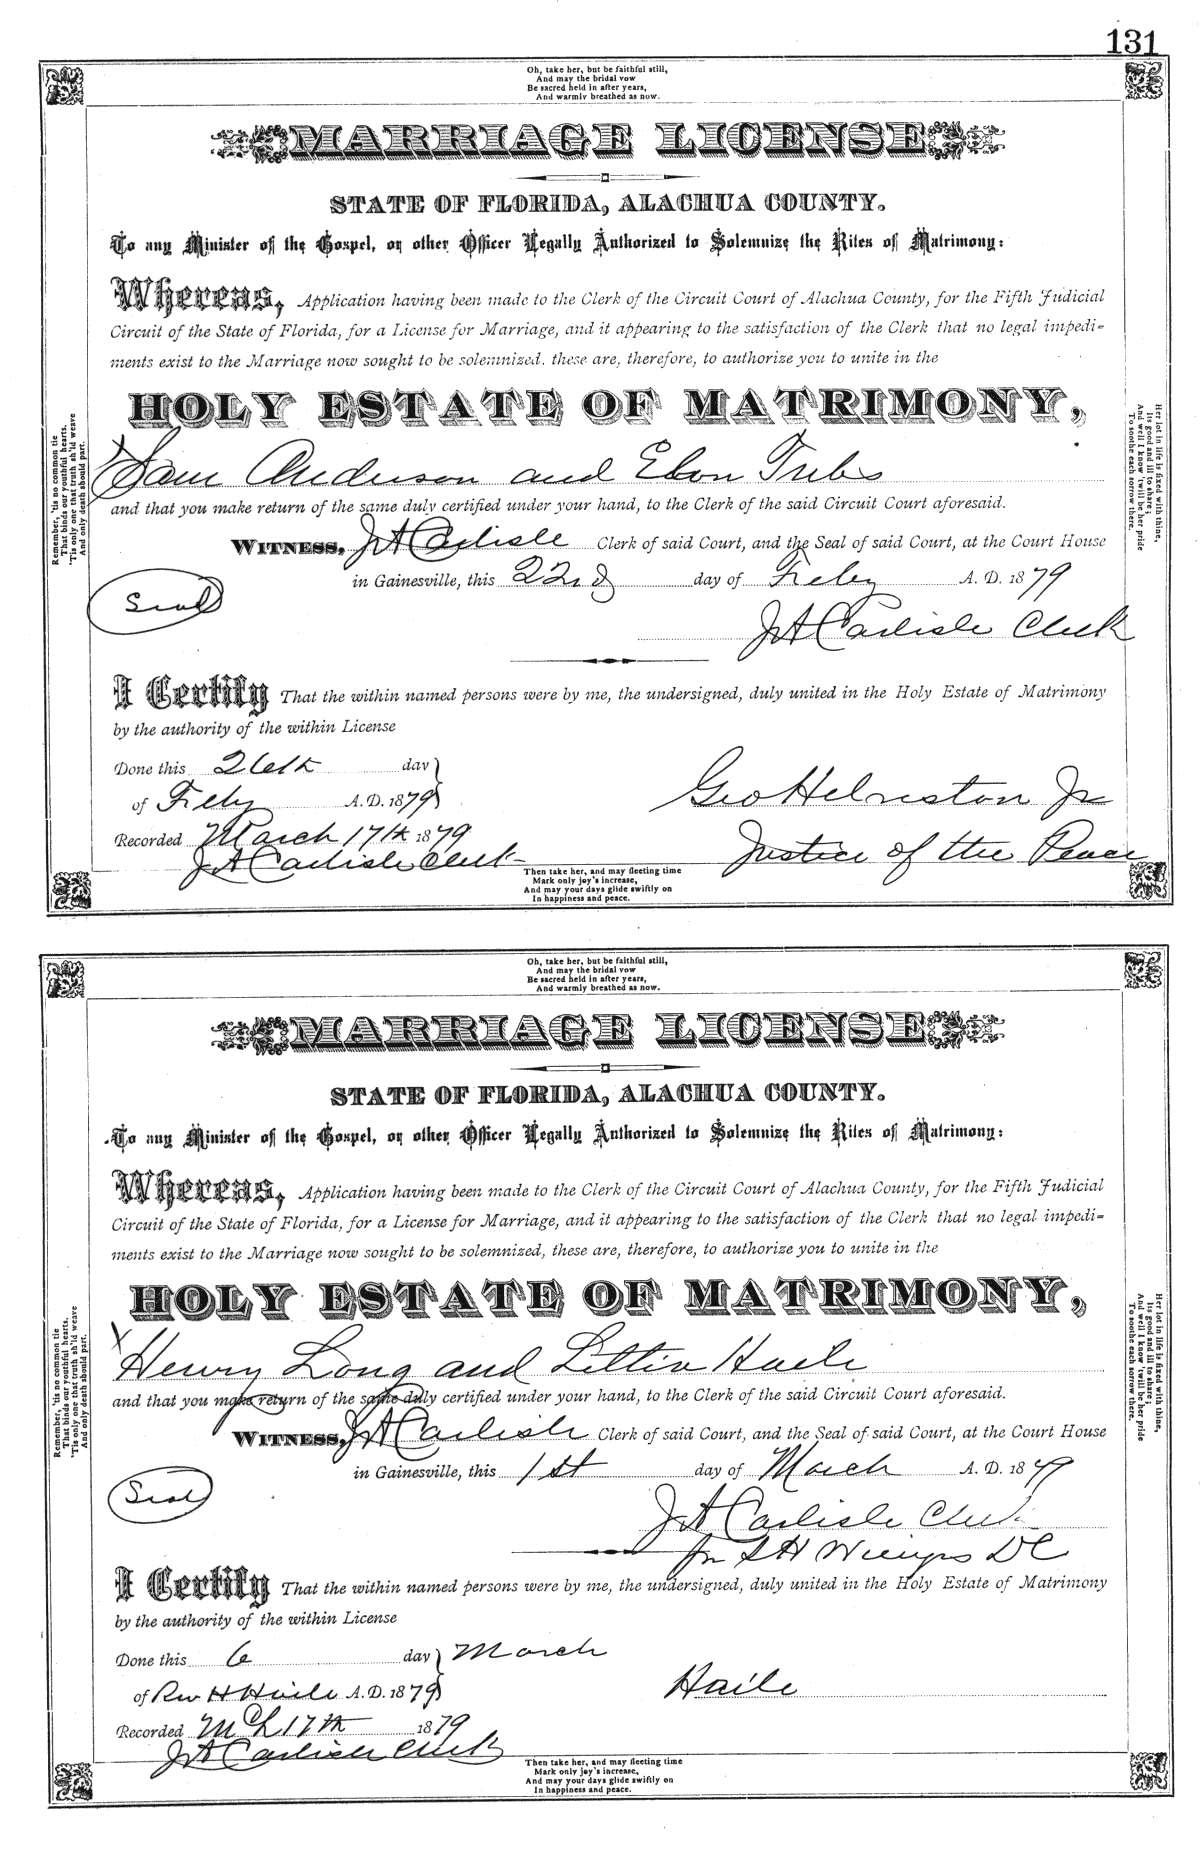 131
Oh, take her, but be faithful still,
And may the bridal vow
Be sacred held in after years,
And warmly breathed as now.
MARRIAGE LICENSE
STATE OF FLORIDA, ALACHUA COUNTY.
To any Minister of the Gospel, or other Officer Legally Authorized to Solemnize the Rites of Matrimony:
Whereas, Application having been made to the Clerk of the Circuit Court of Alachua County, for the Fifth Judicial
Circuit of the State of Florida, for a License for Marriage, and it appearing to the satisfaction of the Clerk that no legal impedi-
ments exist to the Marriage now sought to be solemnized. these are, therefore, to authorize you to unite in the
HOLY ESTATE OF MATRIMONY,
Remember, 'tis no common tie
That binds our youthful hearts.
'Tis only one that truth sh'ld weave
And only death should part.
Her lot in life is fixed with thine,
Its good and ill to share;
And well I know 'twill be her pride
To soothe each sorrow there.
X Sam Anderson and Tubs
and that you make return of the same duly certified under your hand, to the Clerk of the said Circuit Court aforesaid.
WITNESS, J A Carlisle Clerk of said Court, and the Seal of said Court, at the Court House
in Gainesville, this 22nd day of Feby A. D. 1879
Seal
J A Carlisle Clerk
I Certify That the within named persons were by me, the undersigned, duly united in the Holy Estate of Matrimony
by the authority of the within License
Done this 26th day
of Feby A. D. 1879
Geo Helveston Jr
Recorded March 17th 1879
Justice of the Peace
J A Carlisle Clerk
Then take her, and may fleeting time
Mark only joy's increase,
And may your days glide swiftly on
In happiness and peace.
Oh, take her, but be faithful still,
And may the bridal vow
Be sacred held in after years,
And warmly breathed as now.
MARRIAGE LICENSE
STATE OF FLORIDA, ALACHUA COUNTY.
To any Minister of the Gospel, or other Officer Legally Authorized to Solemnize the Rites of Matrimony:
Whereas, Application having been made to the Clerk of the Circuit Court of Alachua County, for the Fifth Judicial
Circuit of the State of Florida, for a License for Marriage, and it appearing to the satisfaction of the Clerk that no legal impedi-
ments exist to the Marriage now sought to be solemnized, these are, therefore, to authorize you to unite in the
HOLY ESTATE OF MATRIMONY,
Remember, 'tis no common tie
That binds our youthful hearts.
'Tis only one that truth sh'ld weave
And only death should part.
Her lot in life is fixed with thine,
Its good and ill to share;
And well I know 'twill be her pride
To soothe each sorrow there.
X Henry Long and Littie Haile
and that you make return of the same duly certified under your hand, to the Clerk of the said Circuit Court aforesaid.
WITNESS, J A Carlisle Clerk of said Court, and the Seal of said Court, at the Court House
in Gainesville, this 1st day of March A. D. 1879
Seal
J A Carlisle Clerk
S H DC
I Certify That the within named persons were by me, the undersigned, duly united in the Holy Estate of Matrimony
by the authority of the within License
Done this 6 day March
of Rev H Haile A. D. 1879
Haile
Recorded Mch 17th 1879
J A Carlisle Clerk
Then take her, and may fleeting time
Mark only joy's increase,
And may your days glide swiftly on
In happiness and peace.